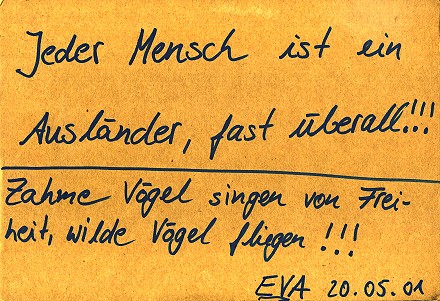 Jeder Mensch ist ein
Ausländer, fast überall!!!
Zahme Vögel singen von Frei-
heit, wilde Vögel fliegen !!!
EVA 20.05.01